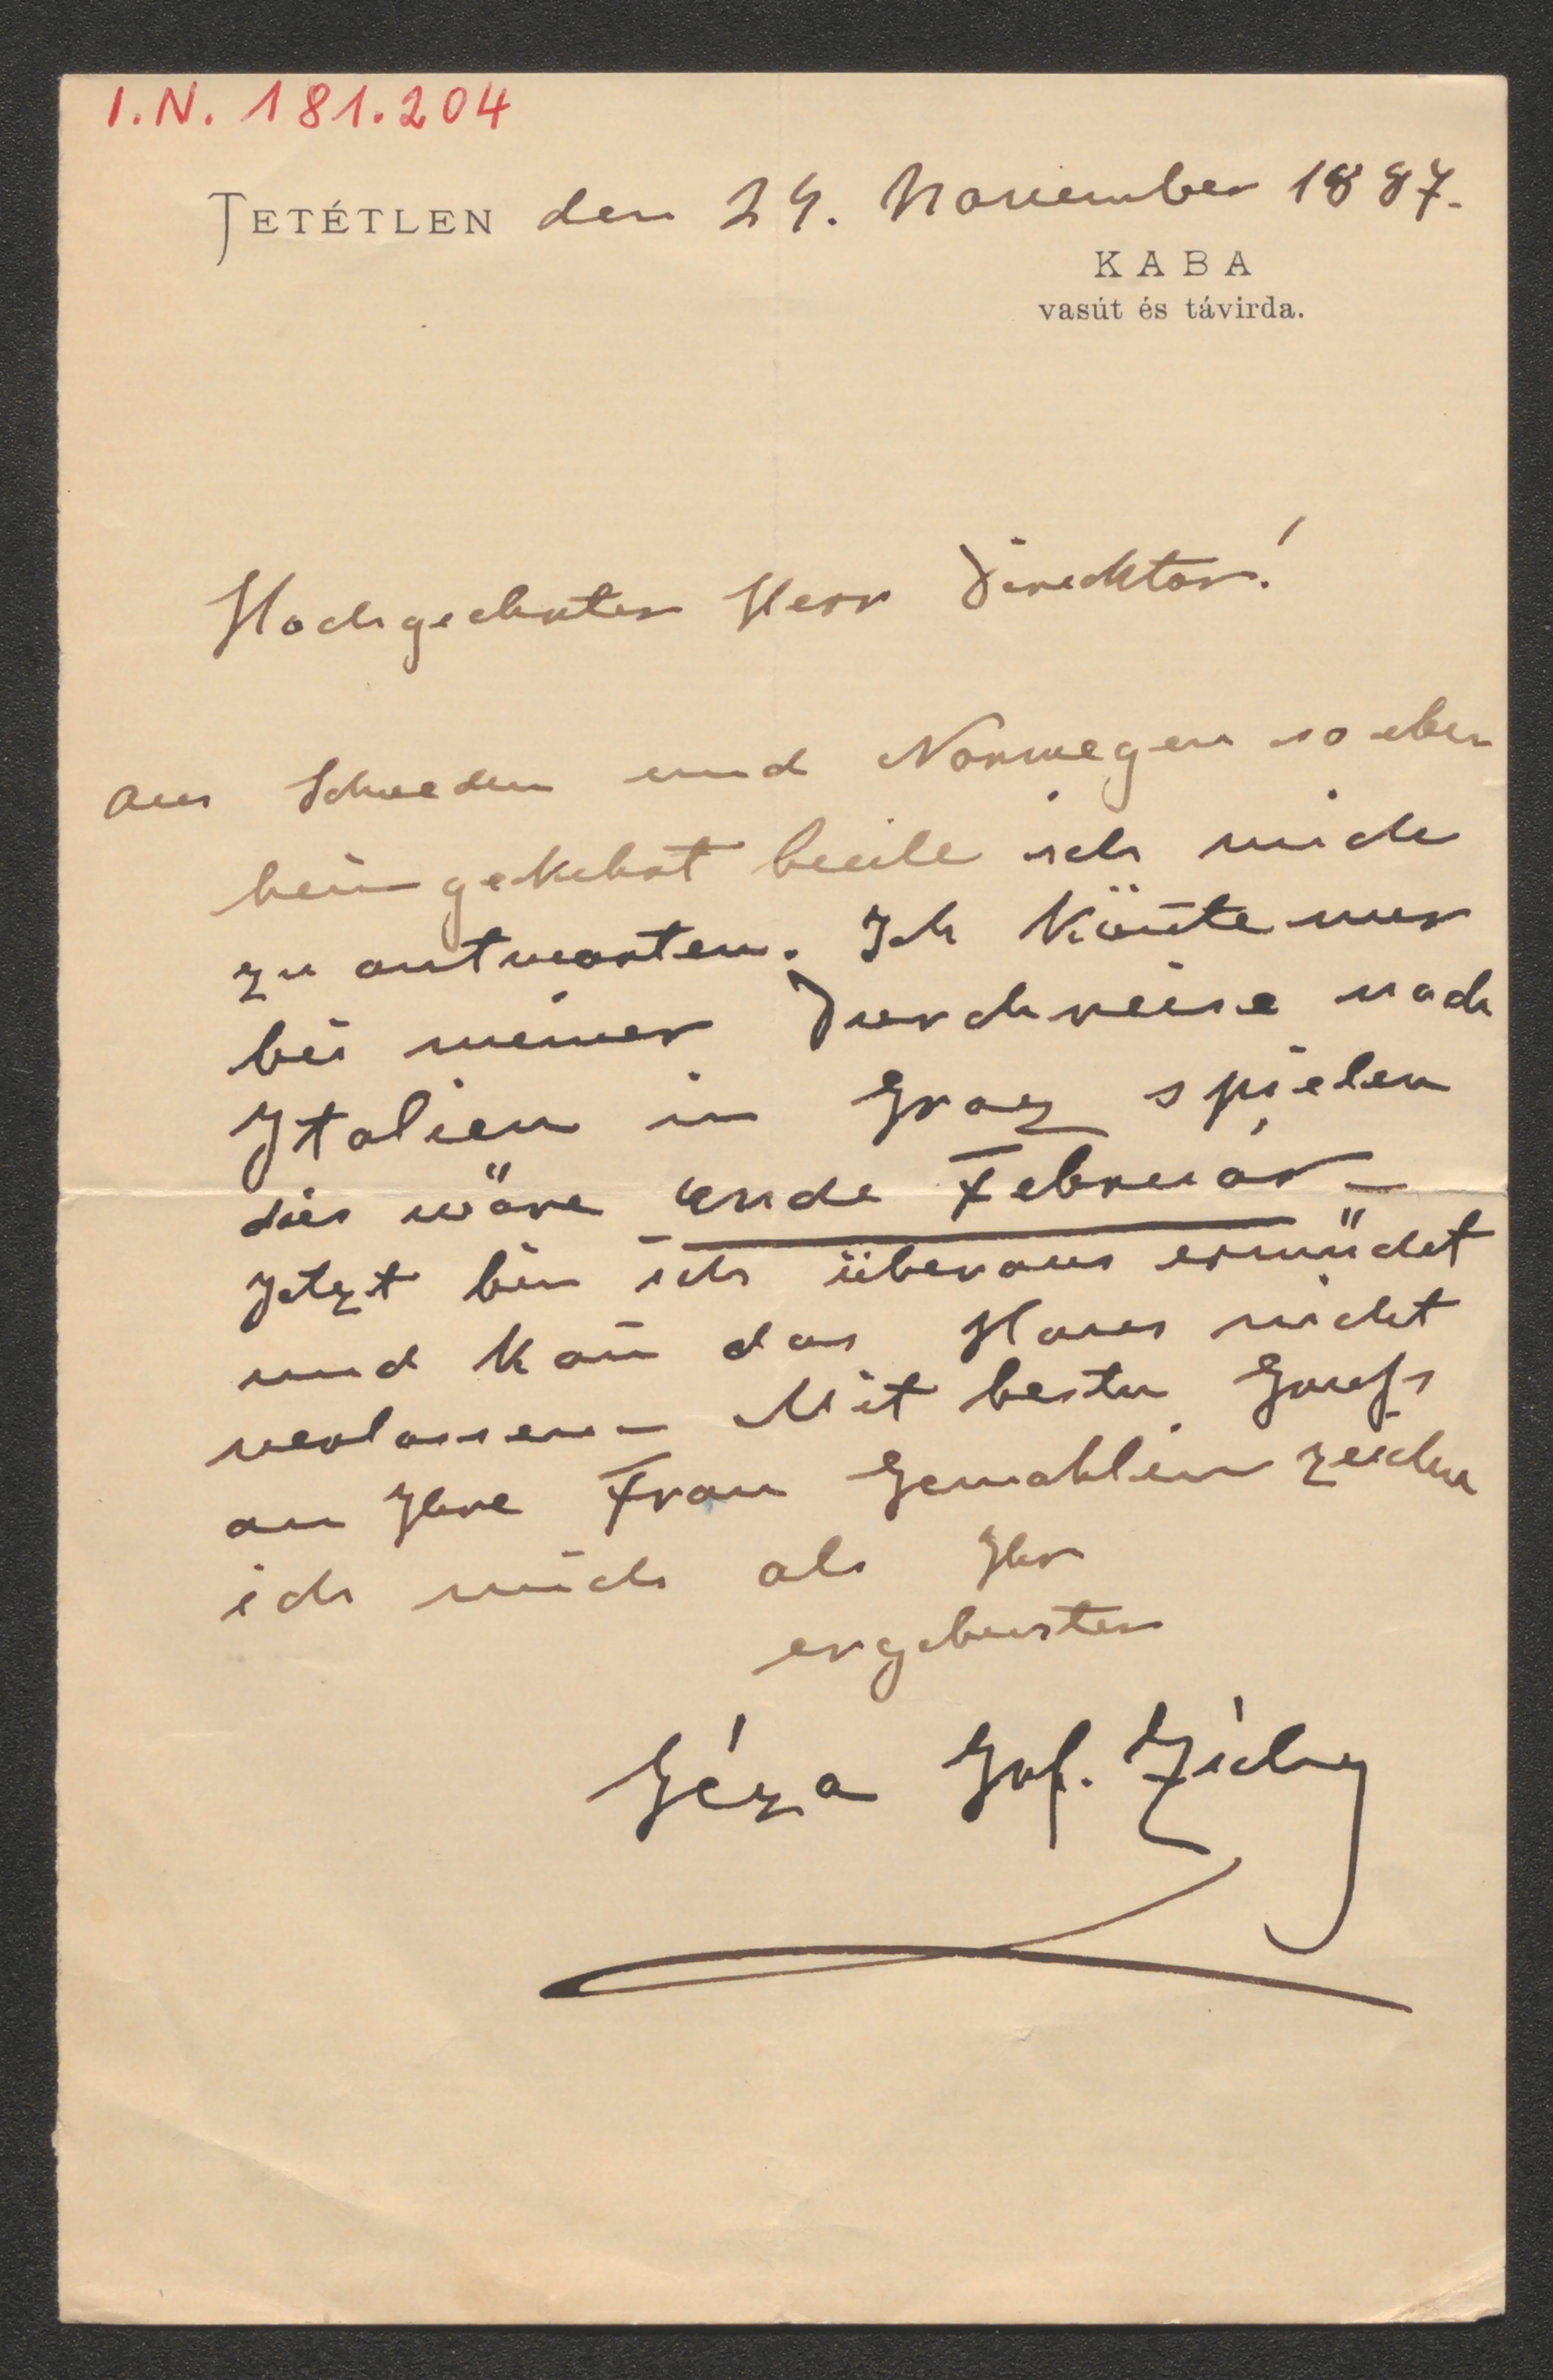 I.N. 181.204
TETÉTLEN den 24. November 1887.
KABA
vasút és távirda.
Hochgeehrter Herr Direcktor!
Aus Schweden und Norwegen so eben
heimgekehrt beeile ich mich
zu antworten. Ich kön̄te nur
bei meiner Durchreise nach
Italien in Graz spielen
dies wäre Ende Február –
Jetzt bin ich überaus ermüdet
und kan̄ das Haus nicht
verlassen – Mit besten Gruss
an Ihre Frau Gemahlin zeichne
ich mich als Ihr
ergebenster
Géza Grf. Zichy